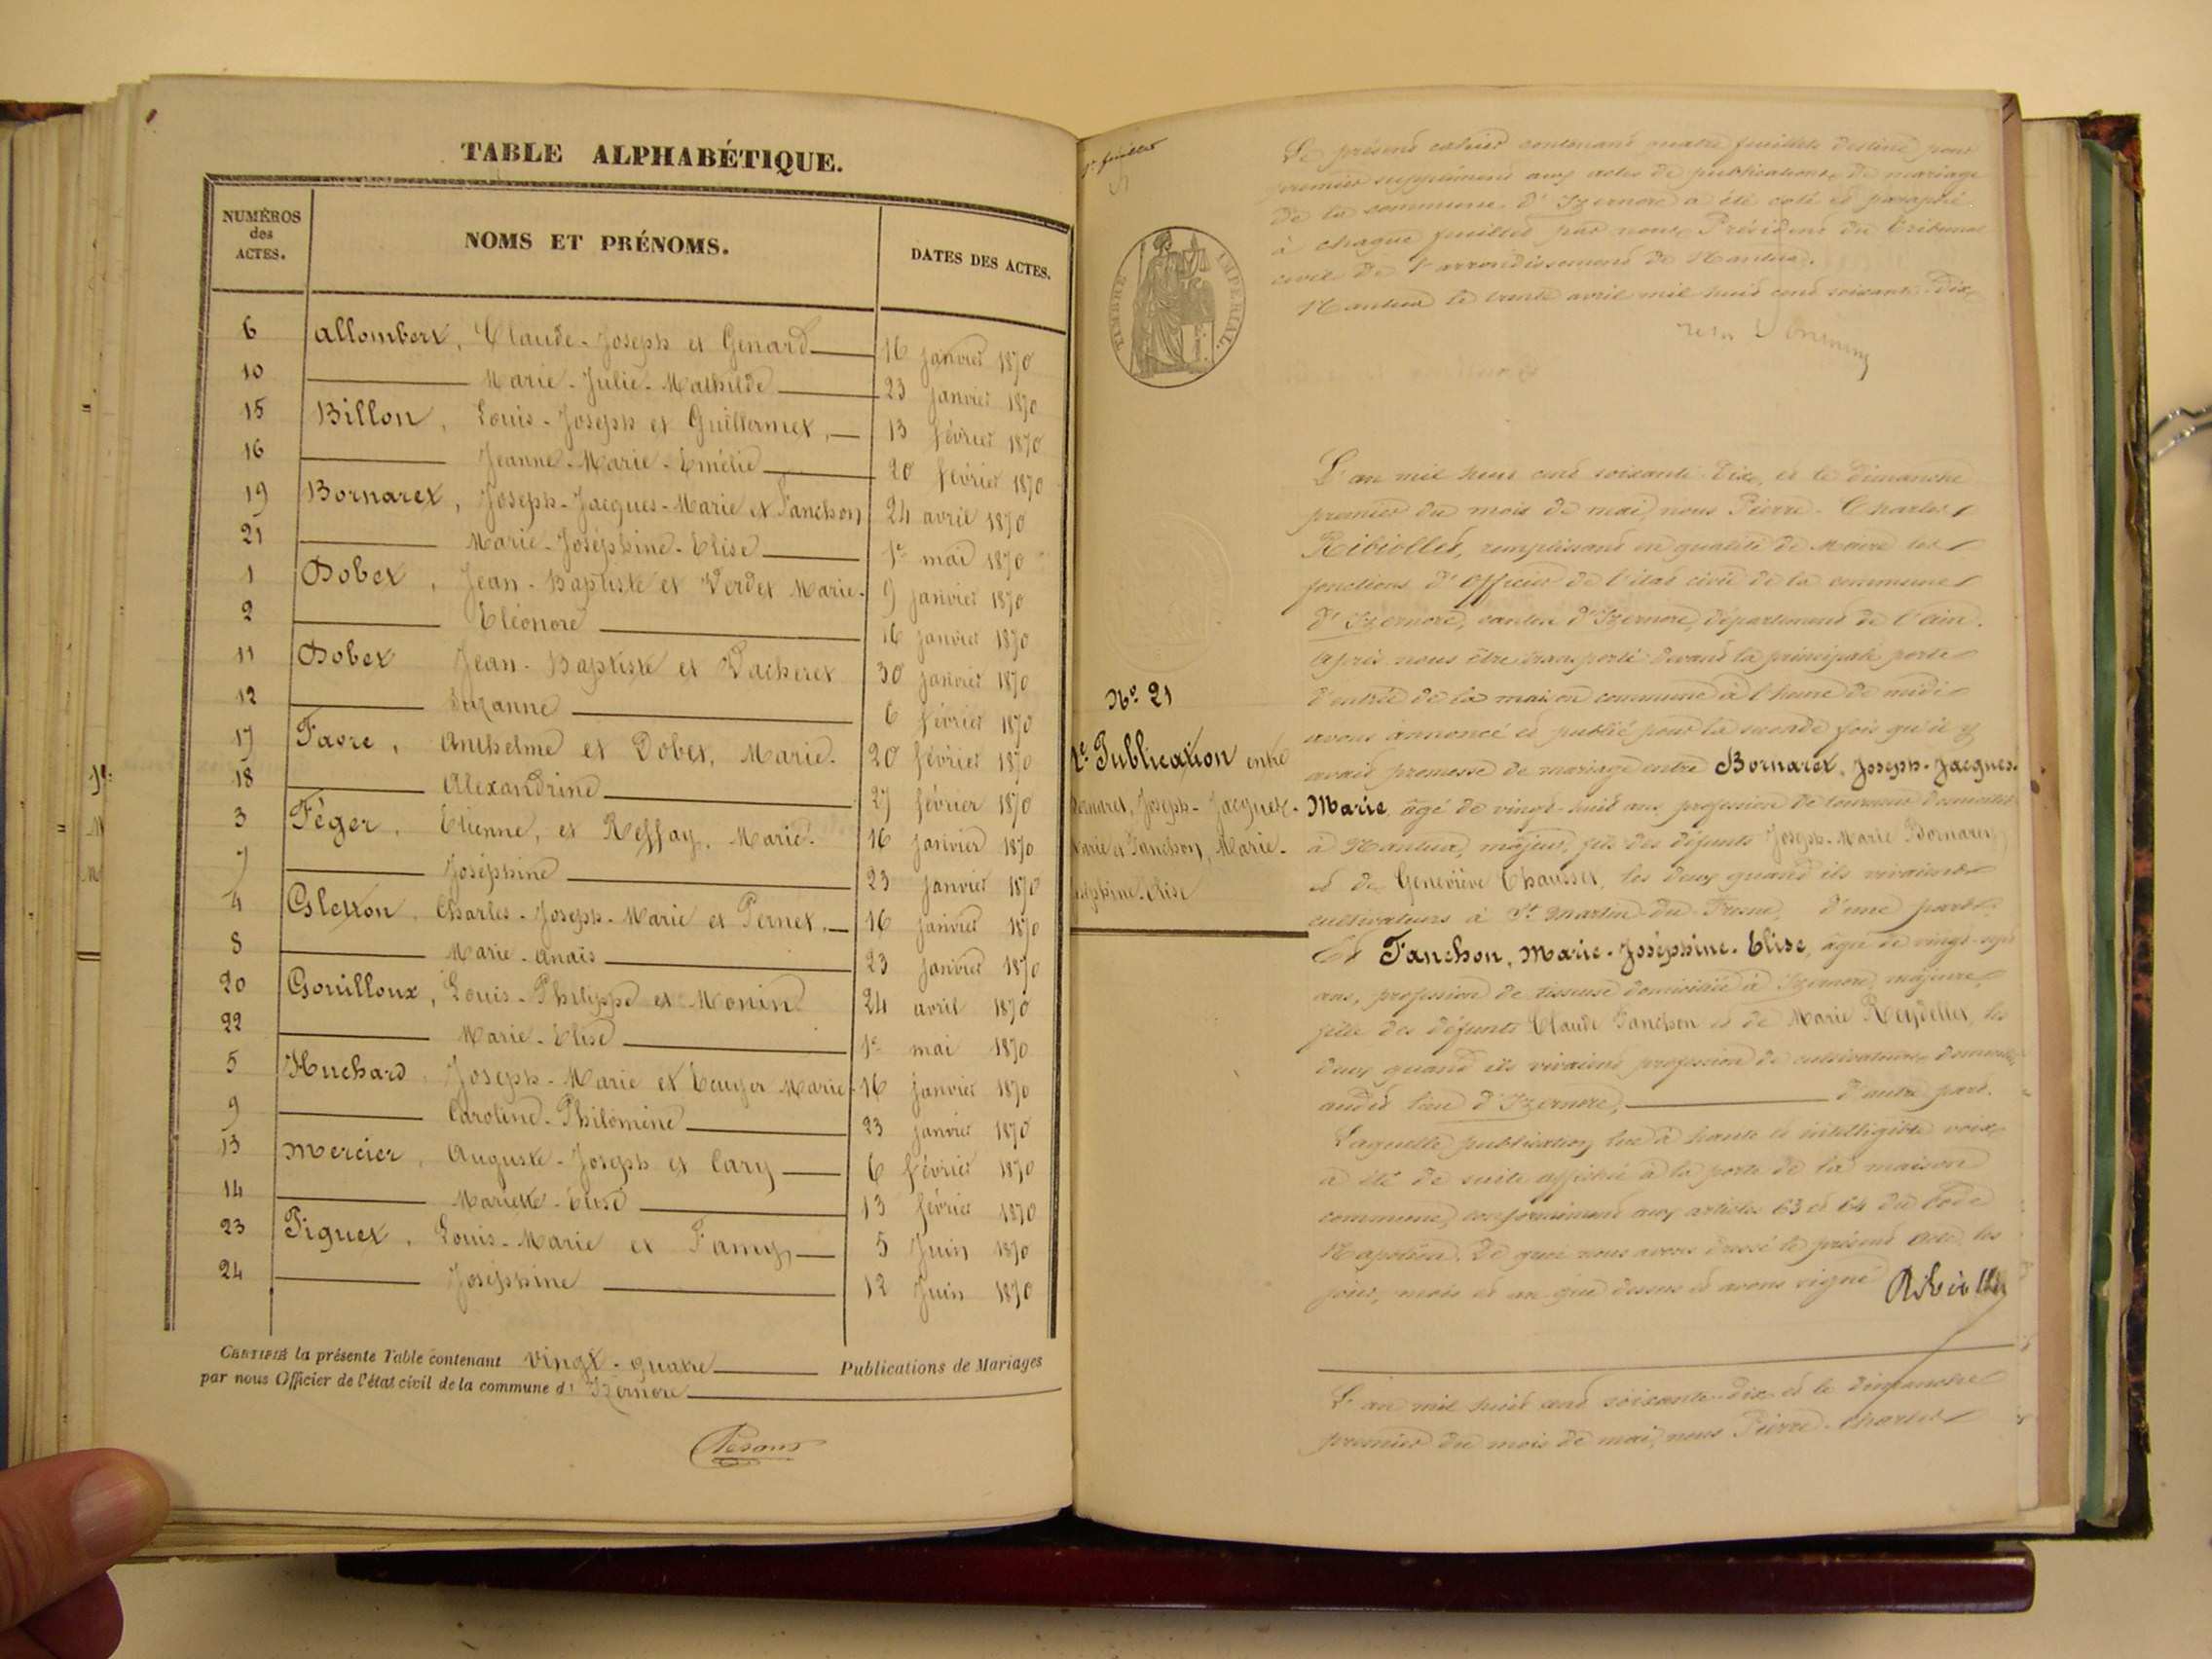 TABLE ALPHABÉTIQUE.
NUMÉROS des ACTES.
NOMS ET PRÉNOMS.
DATES DES ACTES.
6 Allombert, Claude-Joseph et Genard 16 janvier 1870
10 Marie-Julie-Mathilde 23 janvier 1870
15 Billon, Louis-Joseph et Guillermet, 13 février 1870
16 Jeanne-Marie-Emélie 20 février 1870
19 Bornaret, Joseph-Jacques-Marie et Fanchon 24 avril 1870
21 Marie-Joséphine-Elise 1er mai 1870
1 Dobet, Jean-Baptiste et Verdet Marie- 9 janvier 1870
2 Eléonore 16 janvier 1870
11 Dobet Jean-Baptiste et Vacheret 30 janvier 1870
12 Suzanne 6 février 1870
17 Favre, Anthelme et Dobet, Marie- 20 février 1870
18 Alexandrine 27 février 1870
3 Féger, Etienne, et Reffay, Marie- 16 janvier 1870
7 Joséphine 23 janvier 1870
4 Gletton, Charles-Joseph-Marie et Pernet, 16 janvier 1870
8 Marie-Anaïs 23 janvier 1870
20 Gouilloux, Louis-Philippe et Monin 24 avril 1870
22 Marie-Elise 1er mai 1870
5 Huchard, Joseph-Marie et Marie- 16 janvier 1870
9 Caroline-Philomène 23 janvier 1870
13 Mercier, Auguste-Joseph et Cary 6 février 1870
14 Mariette-Elise 13 février 1870
23 Piguet, Louis-Marie et Famy, 5 Juin 1870
24 Joséphine 12 Juin 1870
CERTIFIÉ la présente Table contenant vingt-quatre Publications de Mariages
par nous Officier de l'état civil de la commune d' Izernore
1er feuillet
Le présent cahier contenant quatre feuillets destiné pour
premier supplément aux actes de publications de mariage
de la commune d'Izernore a été coté et paraphé
à chaque feuillet par nous Président du Tribunal
civil de l'arrondissement de Nantua.
Nantua le trente avril mil huit cent soixante-dix
TIMBRE IMPÉRIAL.
No 21
2e Publication entre
Bornaret, Joseph-Jacques-
Marie et Fanchon, Marie-
Joséphine-Elise
L'an mil huit cent soixante-dix, et le dimanche
premier du mois de mai, nous Pierre-Charles
Ribiollet, remplissant en qualité de Maire les
fonctions d'Officier de l'état civil de la commune
d'Izernore, canton d'Izernore, département de l'Ain.
Après nous être transporté devant la principale porte
d'entrée de la maison commune à l'heure de midi
avons annoncé et publié pour la seconde fois qu'il y
avait promesse de mariage entre Bornaret, Joseph-Jacques-
Marie, âgé de vingt-huit ans, profession de tourneur domicilié
à Nantua, majeur, fils des défunts Joseph-Marie Bornaret,
et de Geneviève Chausset, les deux quand ils vivaient
cultivateurs à St Martin-du-Fresne, d'une part.
Et Fanchon, Marie-Joséphine-Elise, âgée de vingt-sept
ans, profession de tisseuse domiciliée à Izernore, majeure,
fille des défunts Claude Fanchon et de Marie Reydellet, les
deux quand ils vivaient profession de cultivateurs domiciliés
audit lieu d'Izernore, d'autre part.
Laquelle publication, lue à haute et intelligible voix
a été de suite affichée à la porte de la maison
commune, conformément aux articles 63 et 64 du Code
Napoléon. De quoi nous avons dressé le présent acte, les
jour, mois et an que dessus et avons signé Ribiollet
L'an mil huit cent soixante-dix et le dimanche
premier du mois de mai, nous Pierre-Charles